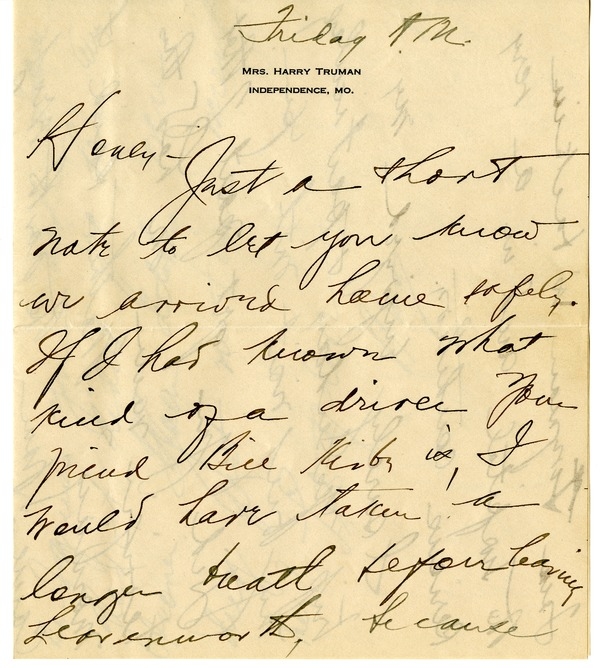 Friday A.M.
MRS. HARRY TRUMAN
INDEPENDENCE, MO.
Honey-
Just a short
note to let you know
we arrived home safely.
If I had known what
kind of a driver your
friend Bill Kirby is, I
would have taken a
longer breath before leaving
Leavenworth, because